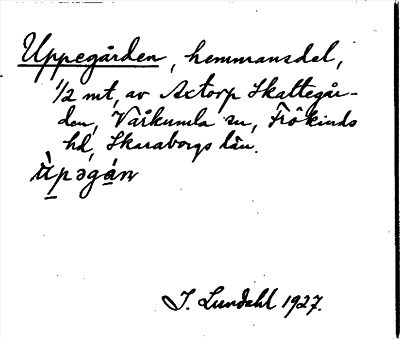 Uppegården, hemmansdel,
1/2 mt, av Axtorp Skattegår-
den, Vårkumla sn, Frökinds
hd, Skaraborgs län.
ùpəgán
J. Lundahl 1927.